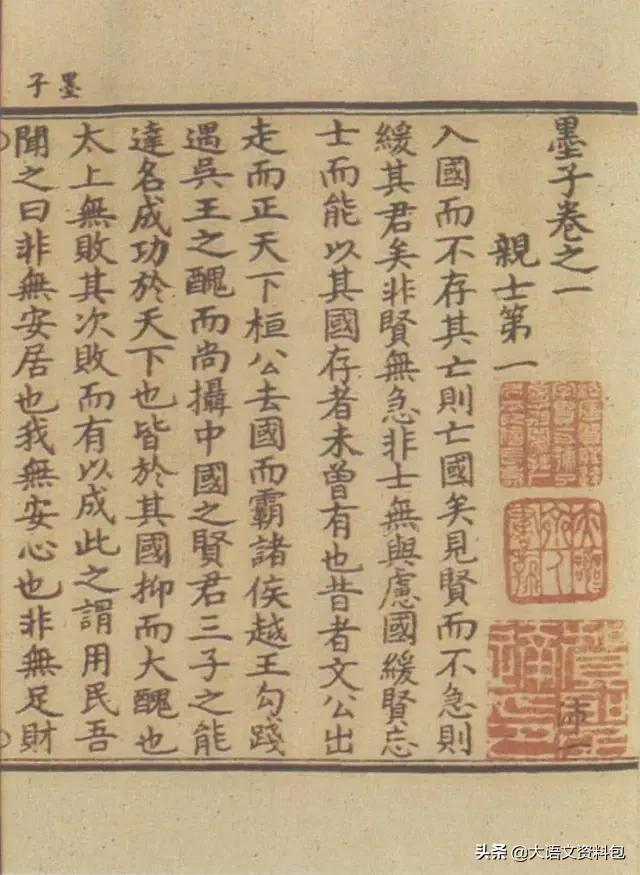 墨子
墨子卷之一
親士第一
入國而不存其亡則亡國矣見賢而不急則
緩其君矣非賢無急非士無與慮國緩賢忘
士而能以其國存者未曾有也昔者文公出
走而正天下桓公去國而霸諸侯越王勾踐
遇吳王之醜而尚攝中國之賢君三子之能
達名成功於天下也皆於其國抑而大醜也
太上無敗其次敗而有以成此之謂用民吾
聞之曰非無安居也我無安心也非無足財
头条 @大语文资料包